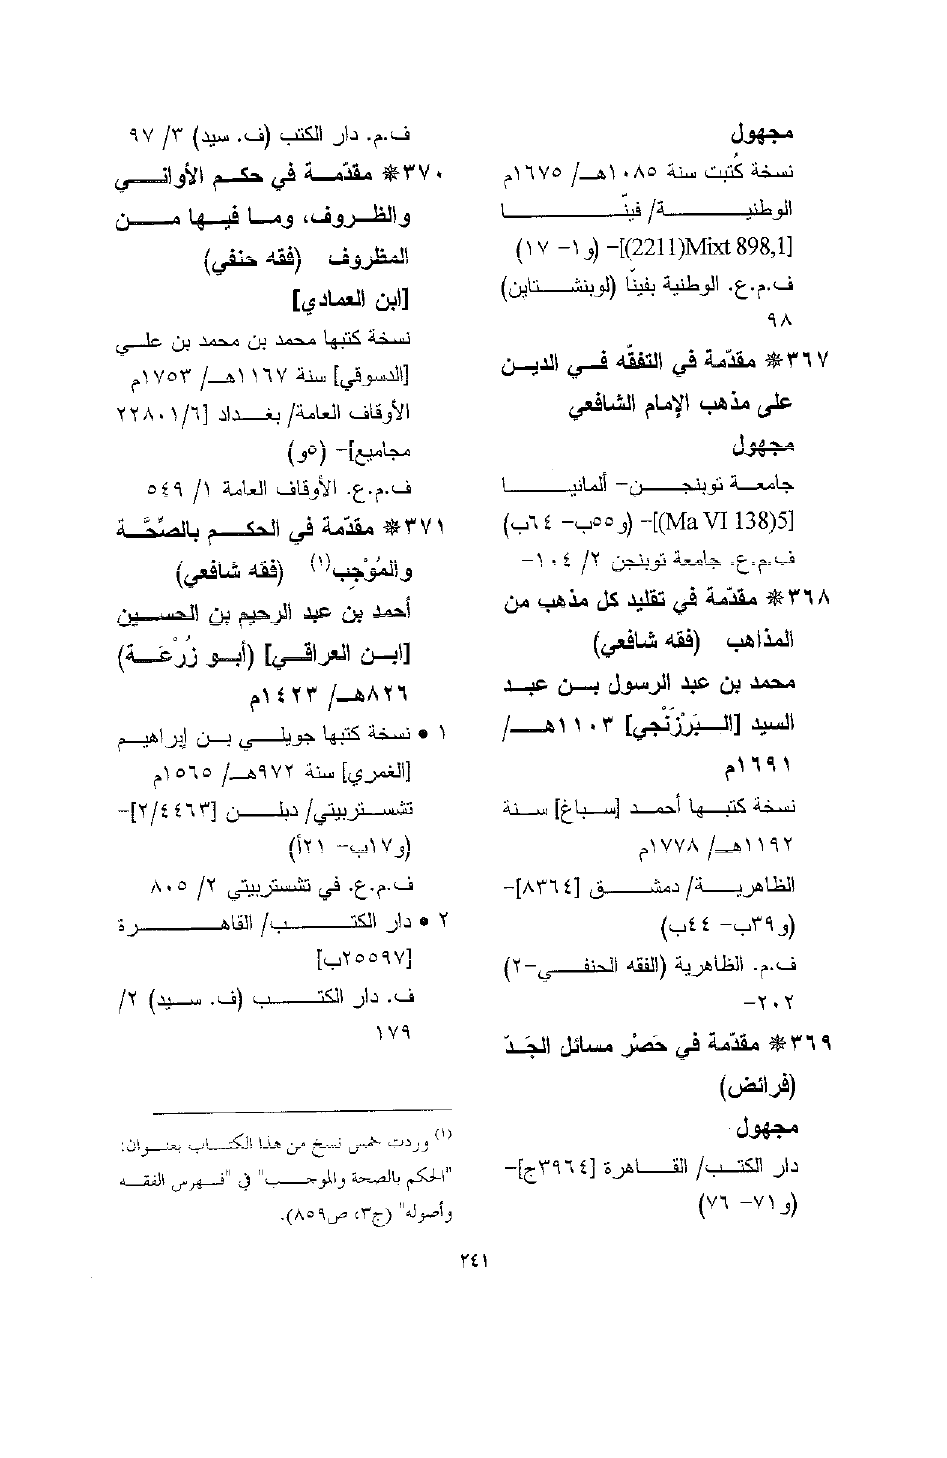 مجهول
نسخة كُتبت سنة ١٠٨٥هـ/ ١٦٧٥م
الوطنيـة/ فينّا
[Mixt 898,1(2211)]- (و١- ١٧)
ف.م.ع. الوطنية بفينّا (لوبنشتاين)
٩٨
٣٦٧* مقدّمة في التفقّه في الدين
على مذهب الإمام الشافعي
مجهول
جامعة توبنجن- ألمانيا
[Ma VI 138)5)]- (و٥٥ب- ٦٤ب)
ف.م.ع. جامعة توبنجن ٢/ ١٠٤-
٣٦٨* مقدّمة في تقليد كل مذهب من
المذاهب (فقه شافعي)
محمد بن عبد الرسول بن عبد
السيد [البَرْزَنْجي] ١١٠٣هـ/
١٦٩١م
نسخة كتبها أحمد [سباغ] سنة
١١٩٢هـ/ ١٧٧٨م
الظاهرية/ دمشق [٨٣٦٤]-
(و٣٩ب- ٤٤ب)
ف.م. الظاهرية (الفقه الحنفي-٢)
٢٠٢-
٣٦٩* مقدّمة في حَصْر مسائل الجَدّ
(فرائض)
مجهول
دار الكتب/ القاهرة [٣٩٦٤ج]-
(و٧١- ٧٦)
ف.م. دار الكتب (ف. سيد) ٣/ ٩٧
٣٧٠* مقدّمة في حكم الأواني
والظروف، وما فيها من
المظروف (فقه حنفي)
[ابن العمادي]
نسخة كتبها محمد بن محمد بن علي
[الدسوقي] سنة ١١٦٧هـ/ ١٧٥٣م
الأوقاف العامة/ بغداد [٢٢٨٠١/٦
مجاميع]- (٥و)
ف.م.ع. الأوقاف العامة ١/ ٥٤٩
٣٧١* مقدّمة في الحكم بالصِّحَّة
والمُوْجِب(١) (فقه شافعي)
أحمد بن عبد الرحيم بن الحسين
[ابن العراقي] (أبو زُرْعَة)
٨٢٦هـ/ ١٤٢٣م
١ • نسخة كتبها جويلي بن إبراهيم
[الغمري] سنة ٩٧٢هـ/ ١٥٦٥م
تشستربيتي/ دبلن [٢/٤٤٦٣]-
(و١٧ب- ٢١أ)
ف.م.ع. في تشستربيتي ٢/ ٨٠٥
٢ • دار الكتب/ القاهرة
[٢٥٥٩٧ب]
ف. دار الكتب (ف. سيد) ٢/
١٧٩
(١) وردت خمس نسخ من هذا الكتاب بعنوان:
"الحكم بالصحة والموجب" في "فهرس الفقه
وأصوله" (ج٣، ص٨٥٩).
٢٤١